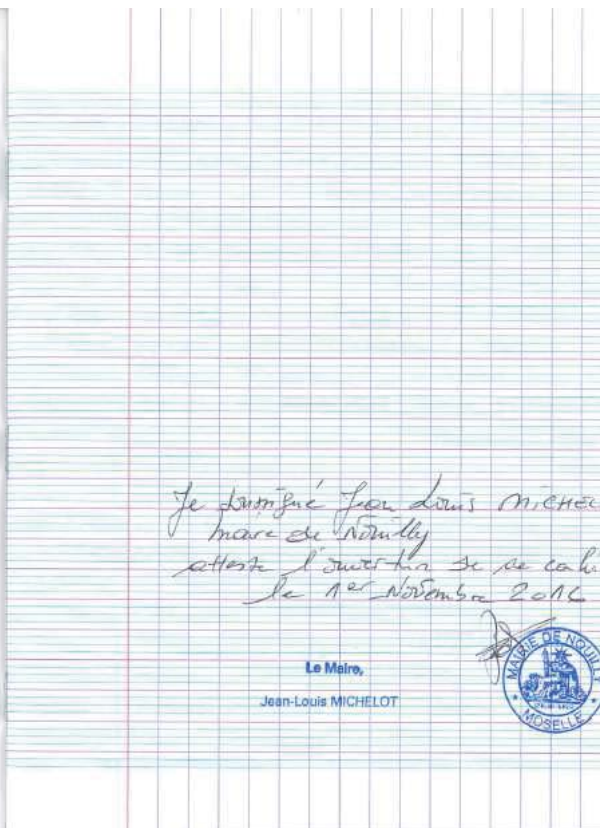 Je soussigné Jean Louis MICHEL
maire de Nouilly
atteste l'ouverture de ce cahi
le 1er Novembre 2016
Le Maire,
Jean-Louis MICHELOT
MAIRIE DE NOUILLY
* MOSELLE *